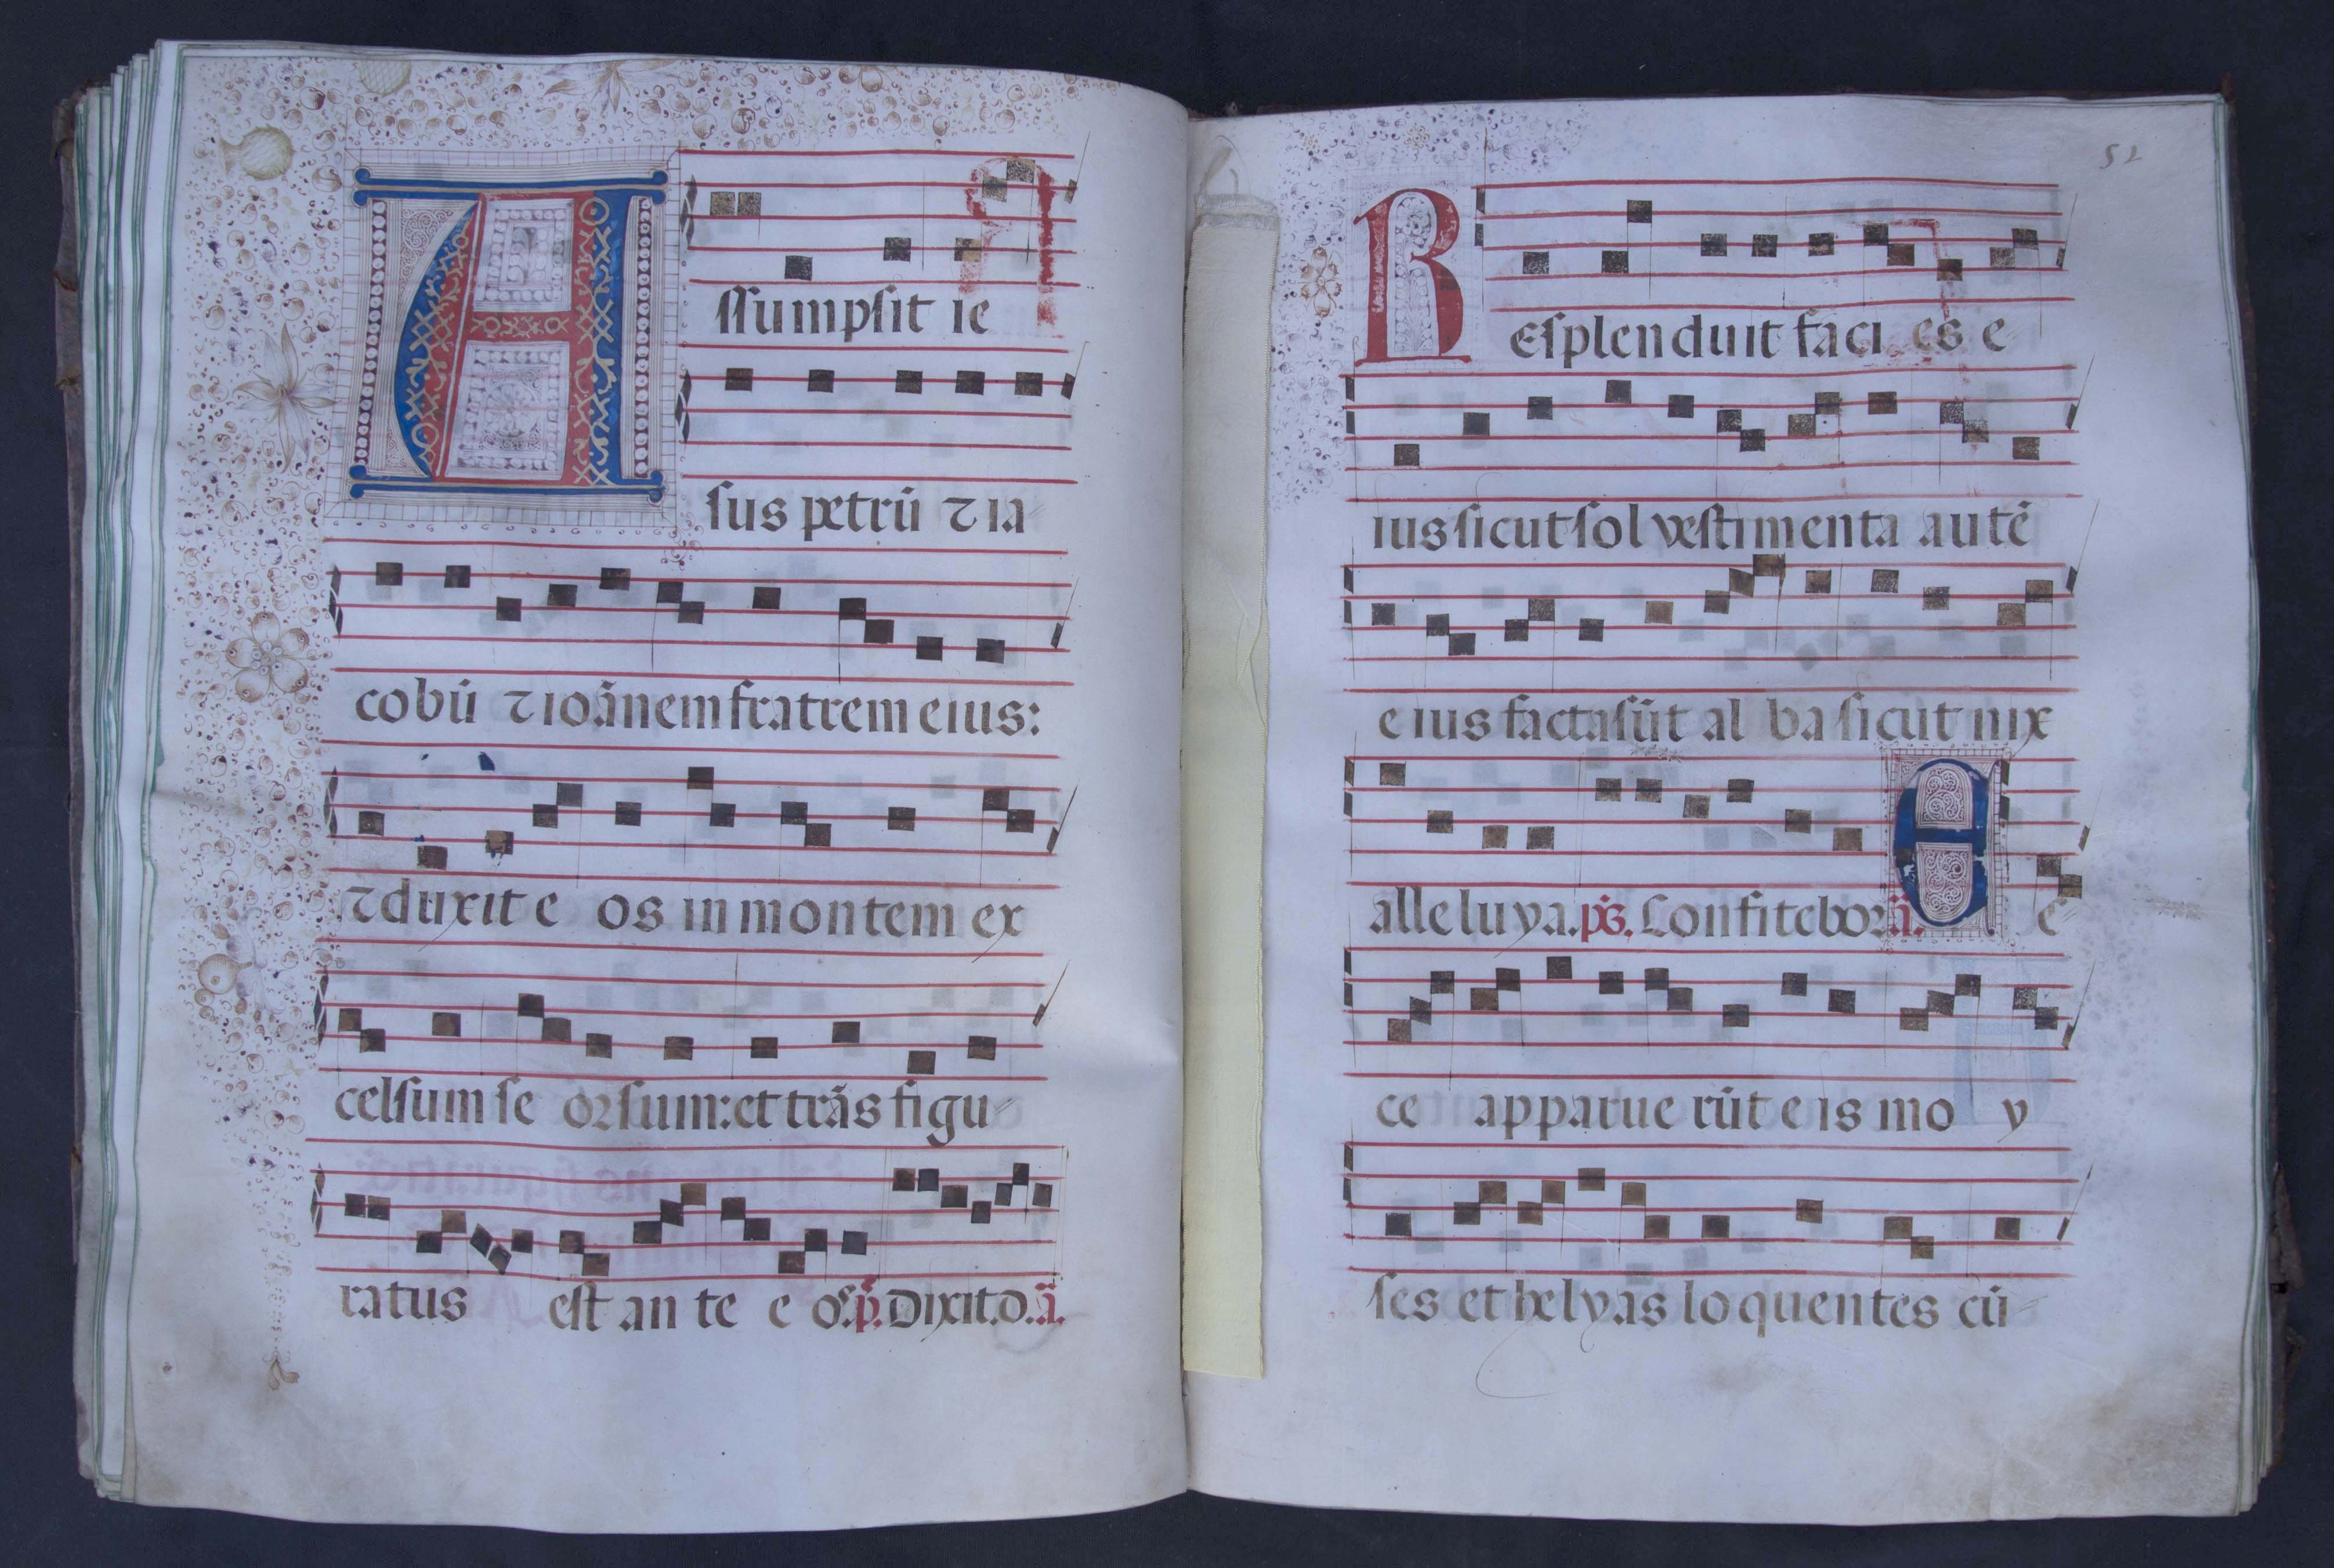 Aſſumpſit ie
ſus petrū ⁊ ia
cobū ⁊ ioānem fratrem eius:
⁊ duxit e os in montem ex
celſum ſe orſum: et trāſ figu
ratus eſt an te e oſ. p̄. Dixit. D. ā.
52
Reſplenduit faci es e
ius ſicut ſol veſtimenta autē
eius facta ſūt al ba ſicut nix
alleluya. pſ. Confitebor. ā. E c
ce apparue rūt eis mo y
ſes et helyas loquentes cū